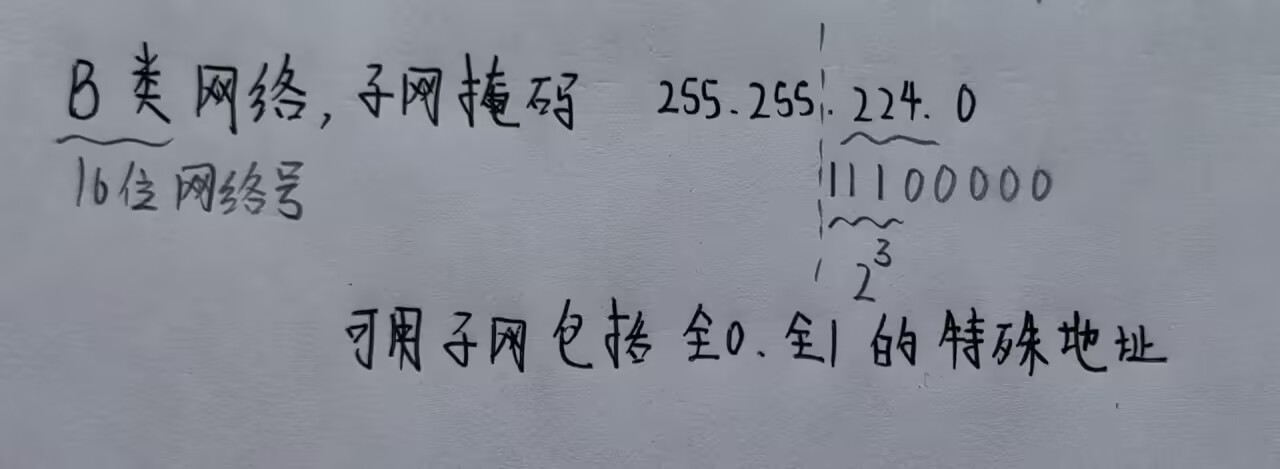 B类网络,子网掩码 255.255.224.0
16位网络号 11100000
2³
可用子网包括全0、全1的特殊地址